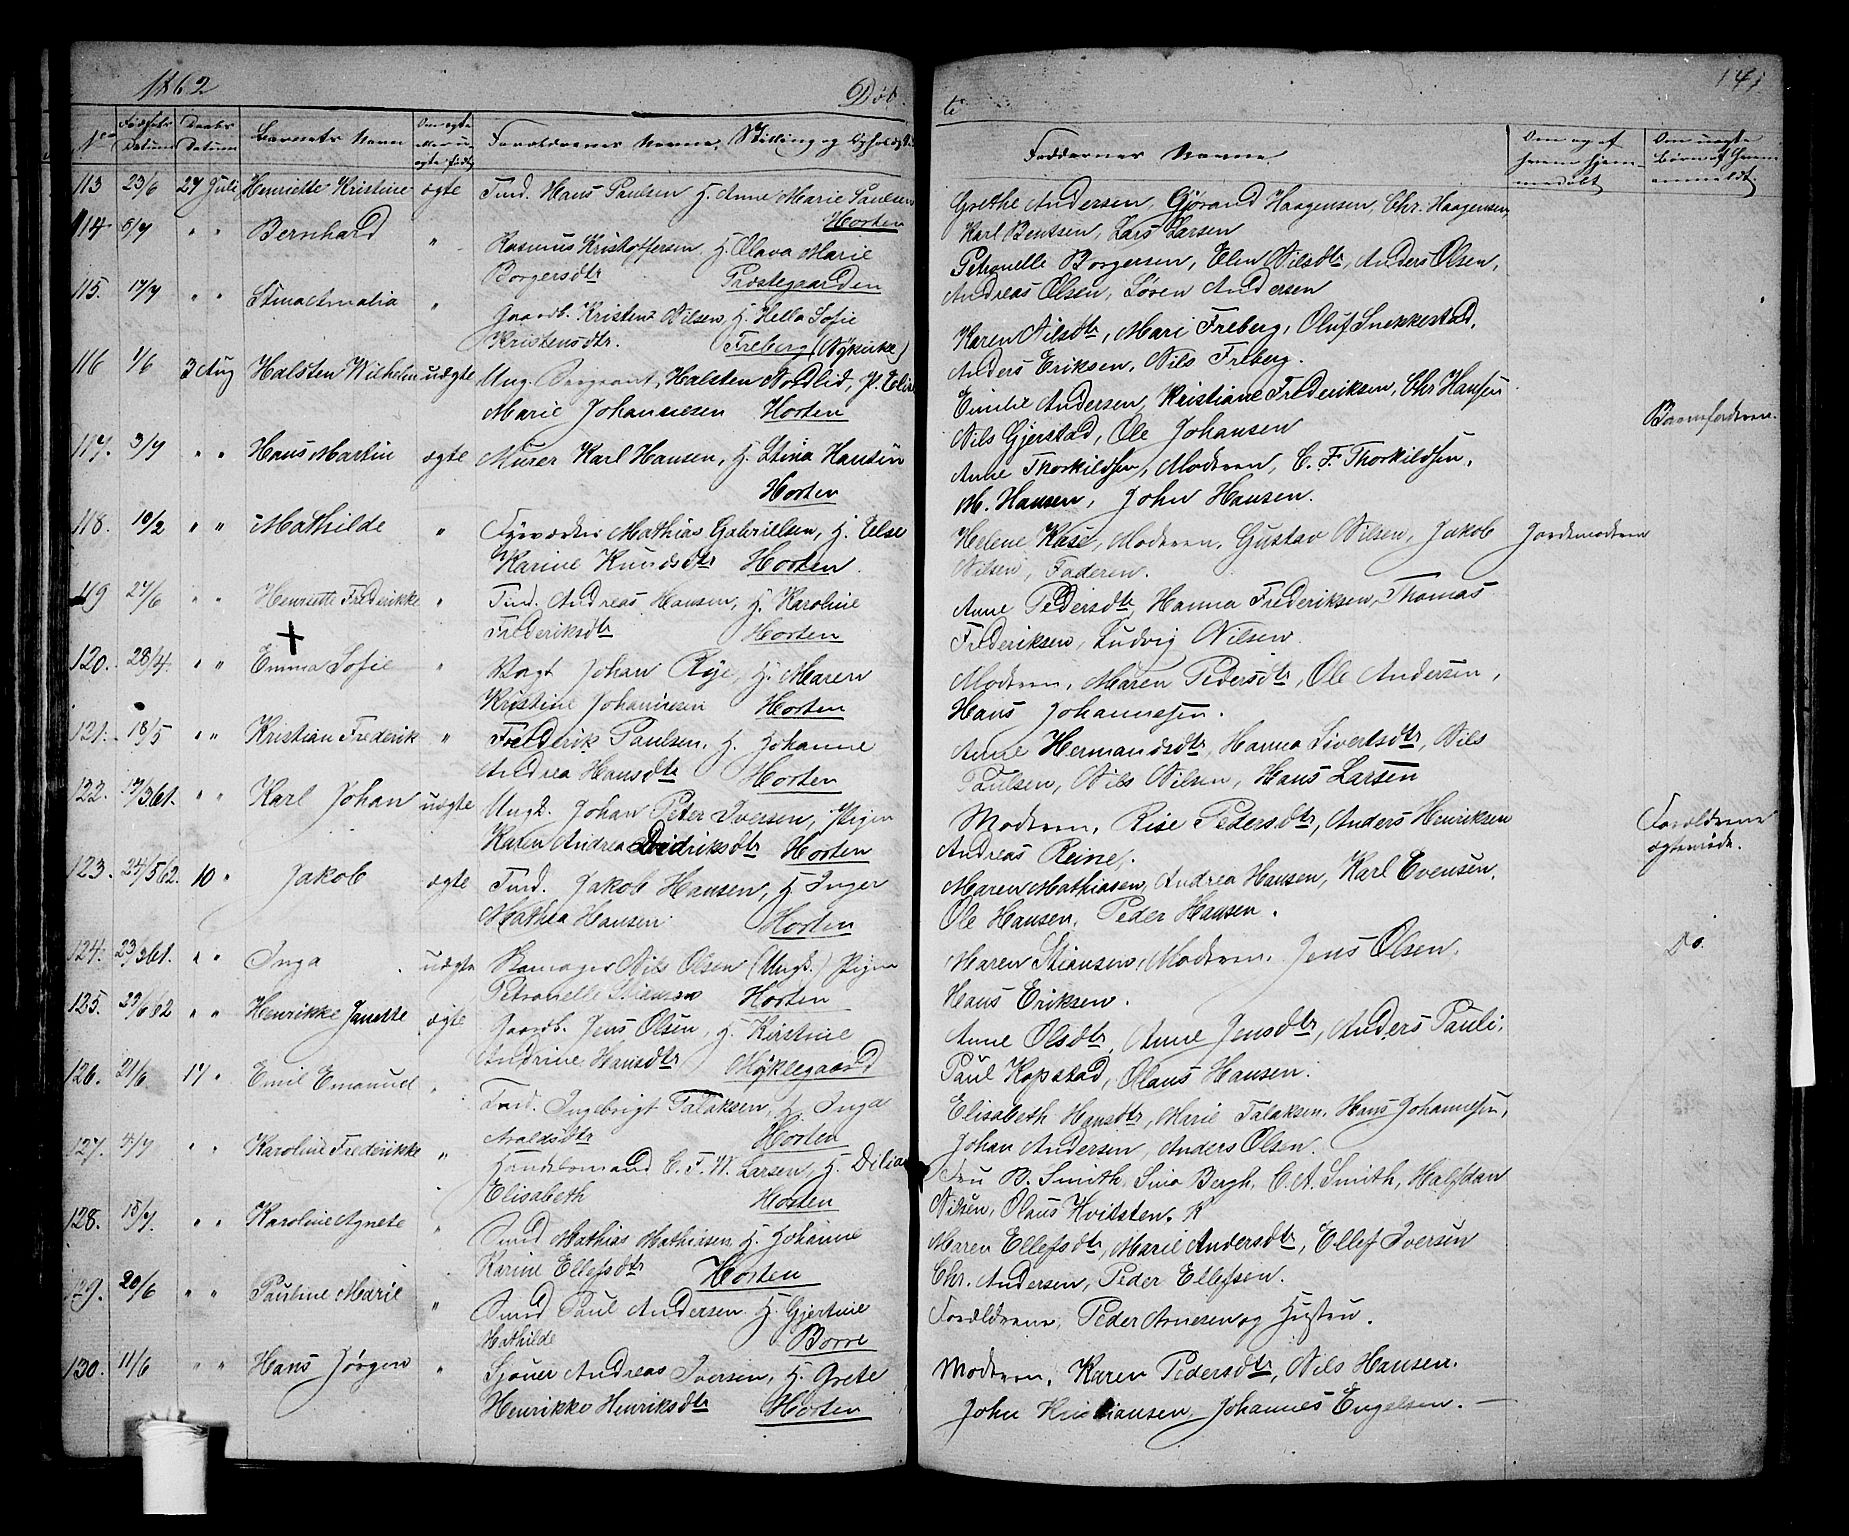 1862
Døb
No Fødsels Datum Daabs Datum Barnets Navn Om ægte eller uægte født Forældrenes Navne, Stilling og Opholdssted
113 23/6 27 Juli Henriette Kristine ægte Tmd. Hans Paulsen H. Anne Marie Paulsen
Horten
114 6/7 " " Bernhard " Rasmus Kristoffersen H. Olava Marie
Borgersdtr Præstegaarden
115. 17/7 " " Stina Amalia " Gaardb. Kristen Nilsen, H. Hella Sofie
Kristensdtr. Freberg (Nykirke)
116 1/6 3 Aug Halsten Wilhelm uægte Ung. Sergeant, Halsten Nordlid, P.
Marie Johannesen Horten
117. 3/7 " " Hans Martin ægte Murer Karl Hansen, H. Stina Hansen
Horten
118. 10/2 " " Mathilde " Fyrvæter Mathias Gabrielsen, H. Else
Karine Knudsdtr Horten.
119 27/6 " " Henriette Frederikke " Tmd. Andreas Hansen, H. Karoline
Frederiksdtr Horten
120. 28/4. " " Emma Sofie " Vagt Johan Röje, H. Maren
Kristine Johannesen Horten
121. 18/5 " " Kristian Frederik " Frederik Paulsen, H. Johanne
Andrea Hansdtr Horten
122. 17/3 61. " " Karl Johan uægte Ungk. Johan Peter Iversen, Pigen
Karen Andrea Didriksdtr Horten
123. 24/5 62. 10 " Jakob ægte Tmd. Jakob Hansen, H. Inger
Mathea Hansen Horten
124. 23/3 61. " " Inga uægte Nils Olsen (Ungk.) Pigen
Petronelle Stiansen Horten
125. 29/6 62 " " Henrikke Janette ægte Gaardb. Jens Olsen, H. Kirstine
Andrine Hansdtr Myklegaard
126. 21/6 17 " Emil Emanuel " Tmd. Ingebrigt Talaksen, H. Inga
Araldsdtr Horten
127. 4/7 " " Karoline Frederikke " Handelsmand C. F. W. Larsen, H.
Elisabeth Horten
128. 15/7. " " Karoline Agnete " Tmd Mathias Mathiasen H. Johanne
Karine Ellefsdtr Horten
129. 20/6 " " Pauline Marie " Tmd Paul Andersen H. Gjertine
Mathilde Borre
130. 11/6 " " Hans Jørgen " Sjöuer Andreas Iversen, H. Grete
Henrikke Henriksdtr Horten
te
141
Faddernes Navne Om og af hvem hjemmedøbt Om uægte børn af hvem anmeldt.
Grethe Andersen, Gjørand Haagensen, Chr. Haagensen,
Karl Bentsen, Lars Larsen
Petronelle Borgersen, Elen Nilsdtr, Anders Olsen,
Andreas Olsen, Søren Andersen
Karen Nilsdtr, Mari Freberg, Oluf Snekkestad,
Anders Eriksen, Nils Freberg.
Emilie Andersen, Kristiane Frederiksen, Chr Hansen
Nils Gjerstad, Ole Johansen Barnefaderen.
Anne Thorkildsen, Moderen, C. F. Thorkildsen,
M. Hansen, John Hansen.
Helene Kase, Moderen, Gustav Nilsen, Jakob Jordemoderen
Nilsen, Faderen.
Anne Pedersdtr, Hanna Frederiksen, Thomas
Frederiksen, Ludvig Nilsen.
Moderen, Maren Pedersdtr, Ole Andersen,
Hans Johannesen.
Anne Hermandsdtr, Hanna Sivertsdtr, Nils
Paulsen, Nils Nilsen, Hans Larsen
Moderen, Rise Pedersdtr, Anders Henriksen Forældrene
Andreas Reine.
Maren Mathiasen, Andrea Hansen, Karl Evensen,
Ole Hansen, Peder Hansen.
Maren Stiansen, Moderen, Jens Olsen, Do.
Hans Eriksen.
Anne Olsdtr, Anne Jensdtr, Anders Pauli,
Paul Kopstad, Olaus Hansen.
Elisabeth Hansdtr, Marie Talaksen, Hans Johannesen,
Johan Andersen, Anders Olsen.
Fru B. Smith, Sina Bergh, C. A. Smith, Halfdan
Nilsen, Olaus Hvidsten.
Maren Ellefsdtr, Marie Andersdtr, Ellef Iversen
Chr. Andersen, Peder Ellefsen.
Forældrene, Peder Arnesen og Hustru.
Moderen, Karen Pedersdtr, Nils Hansen.
John Kristiansen, Johannes Engelsen.